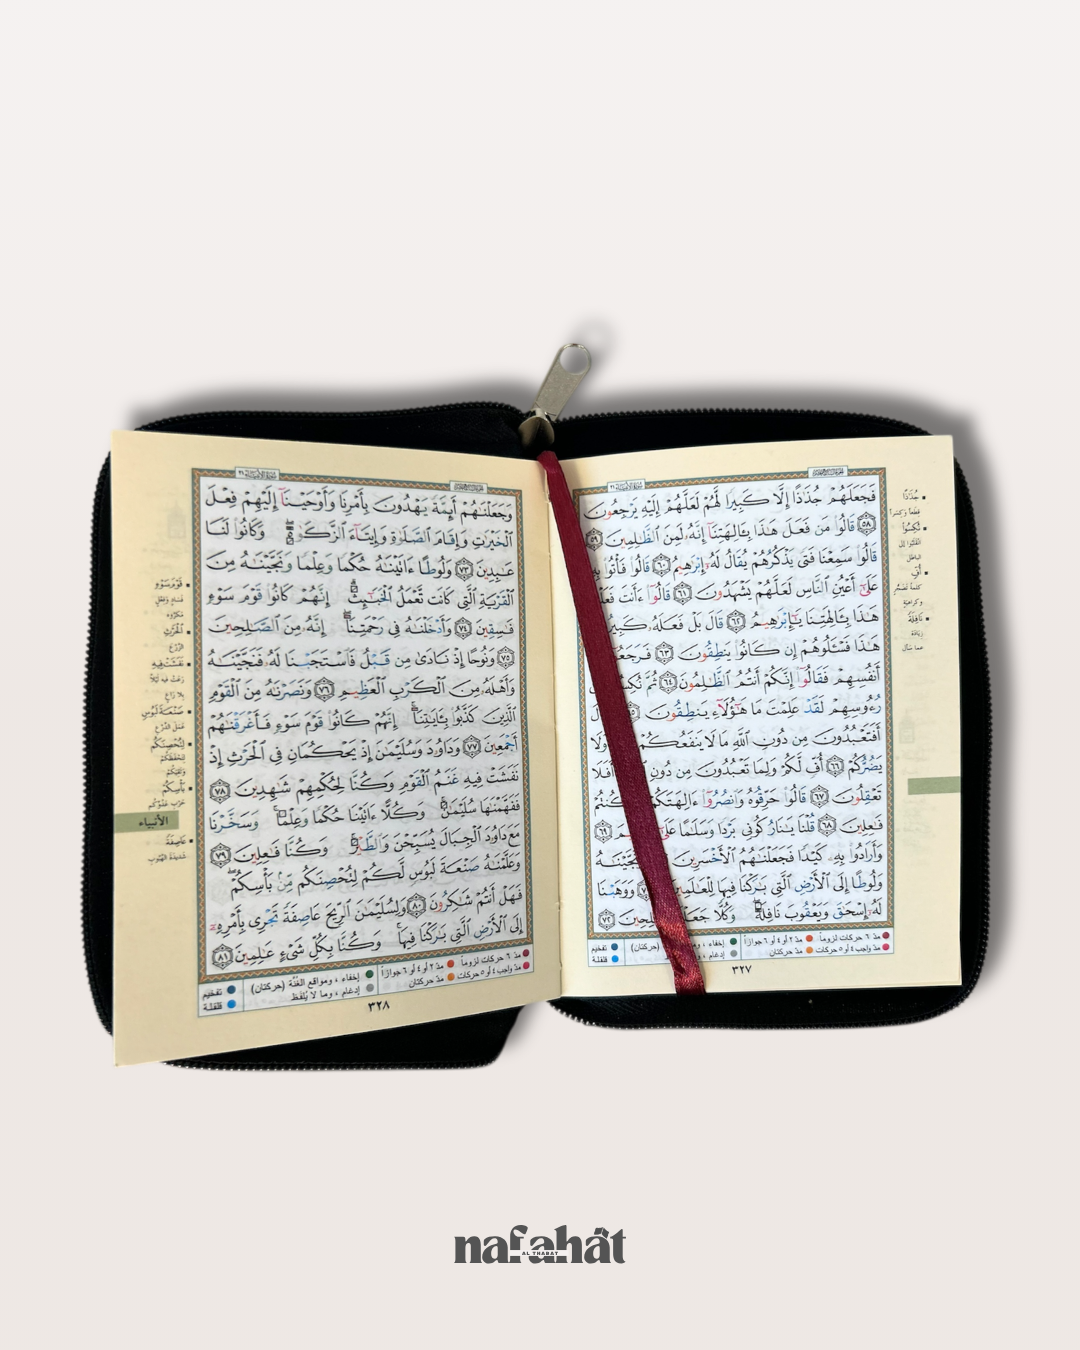 فَجَعَلَهُمْ جُذَاذًا إِلَّا كَبِيرًا لَّهُمْ لَعَلَّهُمْ إِلَيْهِ يَرْجِعُونَ
٥٨ قَالُوا۟ مَن فَعَلَ هَـٰذَا بِـَٔالِهَتِنَآ إِنَّهُۥ لَمِنَ ٱلظَّـٰلِمِينَ ٥٩
قَالُوا۟ سَمِعْنَا فَتًى يَذْكُرُهُمْ يُقَالُ لَهُۥٓ إِبْرَٰهِيمُ ٦٠ قَالُوا۟ فَأْتُوا۟ بِهِۦ
عَلَىٰٓ أَعْيُنِ ٱلنَّاسِ لَعَلَّهُمْ يَشْهَدُونَ ٦١ قَالُوٓا۟ ءَأَنتَ فَعَلْتَ
هَـٰذَا بِـَٔالِهَتِنَا يَـٰٓإِبْرَٰهِيمُ ٦٢ قَالَ بَلْ فَعَلَهُۥ كَبِيرُهُمْ
هَـٰذَا فَسْـَٔلُوهُمْ إِن كَانُوا۟ يَنطِقُونَ ٦٣ فَرَجَعُوٓا۟
أَنفُسِهِمْ فَقَالُوٓا۟ إِنَّكُمْ أَنتُمُ ٱلظَّـٰلِمُونَ ٦٤ ثُمَّ نُكِسُوا۟
رُءُوسِهِمْ لَقَدْ عَلِمْتَ مَا هَـٰٓؤُلَآءِ يَنطِقُونَ
أَفَتَعْبُدُونَ مِن دُونِ ٱللَّهِ مَا لَا يَنفَعُكُمْ وَلَا
يَضُرُّكُمْ ٦٦ أُفٍّ لَّكُمْ وَلِمَا تَعْبُدُونَ مِن دُونِ أَفَلَا
تَعْقِلُونَ ٦٧ قَالُوا۟ حَرِّقُوهُ وَٱنصُرُوٓا۟ ءَالِهَتَكُمْ كُنتُمْ
فَـٰعِلِينَ ٦٨ قُلْنَا يَـٰنَارُ كُونِى بَرْدًا وَسَلَـٰمًا عَلَىٰٓ ٦٩
وَأَرَادُوا۟ بِهِۦ كَيْدًا فَجَعَلْنَـٰهُمُ ٱلْأَخْسَرِينَ وَنَجَّيْنَـٰهُ
وَلُوطًا إِلَى ٱلْأَرْضِ ٱلَّتِى بَـٰرَكْنَا فِيهَا لِلْعَـٰلَمِينَ وَوَهَبْنَا
لَهُۥٓ إِسْحَـٰقَ وَيَعْقُوبَ نَافِلَةً وَكُلًّا جَعَلْنَا صَـٰلِحِينَ ٧٢
جُذَٰذًا
قطعا وكسرا
نُكِسُوا۟
أُفٍّ
نَافِلَةً
زيادة
عما سأل
مدّ ٦ حركات لزوماً مدّ ٢ أو ٤ أو ٦ جوازاً إخفاء (حركتان) تفخيم
مدّ واجب ٤ أو ٥ حركات مدّ حركتان إدغام قلقلة
٣٢٧
وَجَعَلْنَـٰهُمْ أَئِمَّةً يَهْدُونَ بِأَمْرِنَا وَأَوْحَيْنَآ إِلَيْهِمْ فِعْلَ
ٱلْخَيْرَٰتِ وَإِقَامَ ٱلصَّلَوٰةِ وَإِيتَآءَ ٱلزَّكَوٰةِ ۖ وَكَانُوا۟ لَنَا
عَـٰبِدِينَ ٧٣ وَلُوطًا ءَاتَيْنَـٰهُ حُكْمًا وَعِلْمًا وَنَجَّيْنَـٰهُ مِنَ
ٱلْقَرْيَةِ ٱلَّتِى كَانَت تَّعْمَلُ ٱلْخَبَـٰٓئِثَ ۗ إِنَّهُمْ كَانُوا۟ قَوْمَ سَوْءٍ
فَـٰسِقِينَ ٧٤ وَأَدْخَلْنَـٰهُ فِى رَحْمَتِنَآ ۖ إِنَّهُۥ مِنَ ٱلصَّـٰلِحِينَ
٧٥ وَنُوحًا إِذْ نَادَىٰ مِن قَبْلُ فَٱسْتَجَبْنَا لَهُۥ فَنَجَّيْنَـٰهُ
وَأَهْلَهُۥ مِنَ ٱلْكَرْبِ ٱلْعَظِيمِ ٧٦ وَنَصَرْنَـٰهُ مِنَ ٱلْقَوْمِ
ٱلَّذِينَ كَذَّبُوا۟ بِـَٔايَـٰتِنَآ ۚ إِنَّهُمْ كَانُوا۟ قَوْمَ سَوْءٍ فَأَغْرَقْنَـٰهُمْ
أَجْمَعِينَ ٧٧ وَدَاوُۥدَ وَسُلَيْمَـٰنَ إِذْ يَحْكُمَانِ فِى ٱلْحَرْثِ إِذْ
نَفَشَتْ فِيهِ غَنَمُ ٱلْقَوْمِ وَكُنَّا لِحُكْمِهِمْ شَـٰهِدِينَ ٧٨
فَفَهَّمْنَـٰهَا سُلَيْمَـٰنَ ۚ وَكُلًّا ءَاتَيْنَا حُكْمًا وَعِلْمًا ۚ وَسَخَّرْنَا
مَعَ دَاوُۥدَ ٱلْجِبَالَ يُسَبِّحْنَ وَٱلطَّيْرَ ۚ وَكُنَّا فَـٰعِلِينَ ٧٩
وَعَلَّمْنَـٰهُ صَنْعَةَ لَبُوسٍ لَّكُمْ لِتُحْصِنَكُم مِّنۢ بَأْسِكُمْ ۖ
فَهَلْ أَنتُمْ شَـٰكِرُونَ ٨٠ وَلِسُلَيْمَـٰنَ ٱلرِّيحَ عَاصِفَةً تَجْرِى بِأَمْرِهِۦٓ
إِلَى ٱلْأَرْضِ ٱلَّتِى بَـٰرَكْنَا فِيهَا ۚ وَكُنَّا بِكُلِّ شَىْءٍ عَـٰلِمِينَ ٨١
قَوْمَ سَوْءٍ
ٱلْحَرْثِ
الزرع
نَفَشَتْ فِيهِ
رعت فيه ليلاً
بلا راع
صَنْعَةَ لَبُوسٍ
عمل الدروع
لِتُحْصِنَكُم
بَأْسِكُمْ
حرب عدوكم
الأنبياء
عَاصِفَةً
شديدة الهبوب
مدّ ٦ حركات لزوماً مدّ ٢ أو ٤ أو ٦ جوازاً إخفاء ، ومواقع الغُنّة (حركتان) تفخيم
مدّ واجب ٤ أو ٥ حركات مدّ حركتان إدغام ، وما لا يُلفَظ قلقلة
٣٢٨
nafahât
AL THABAT